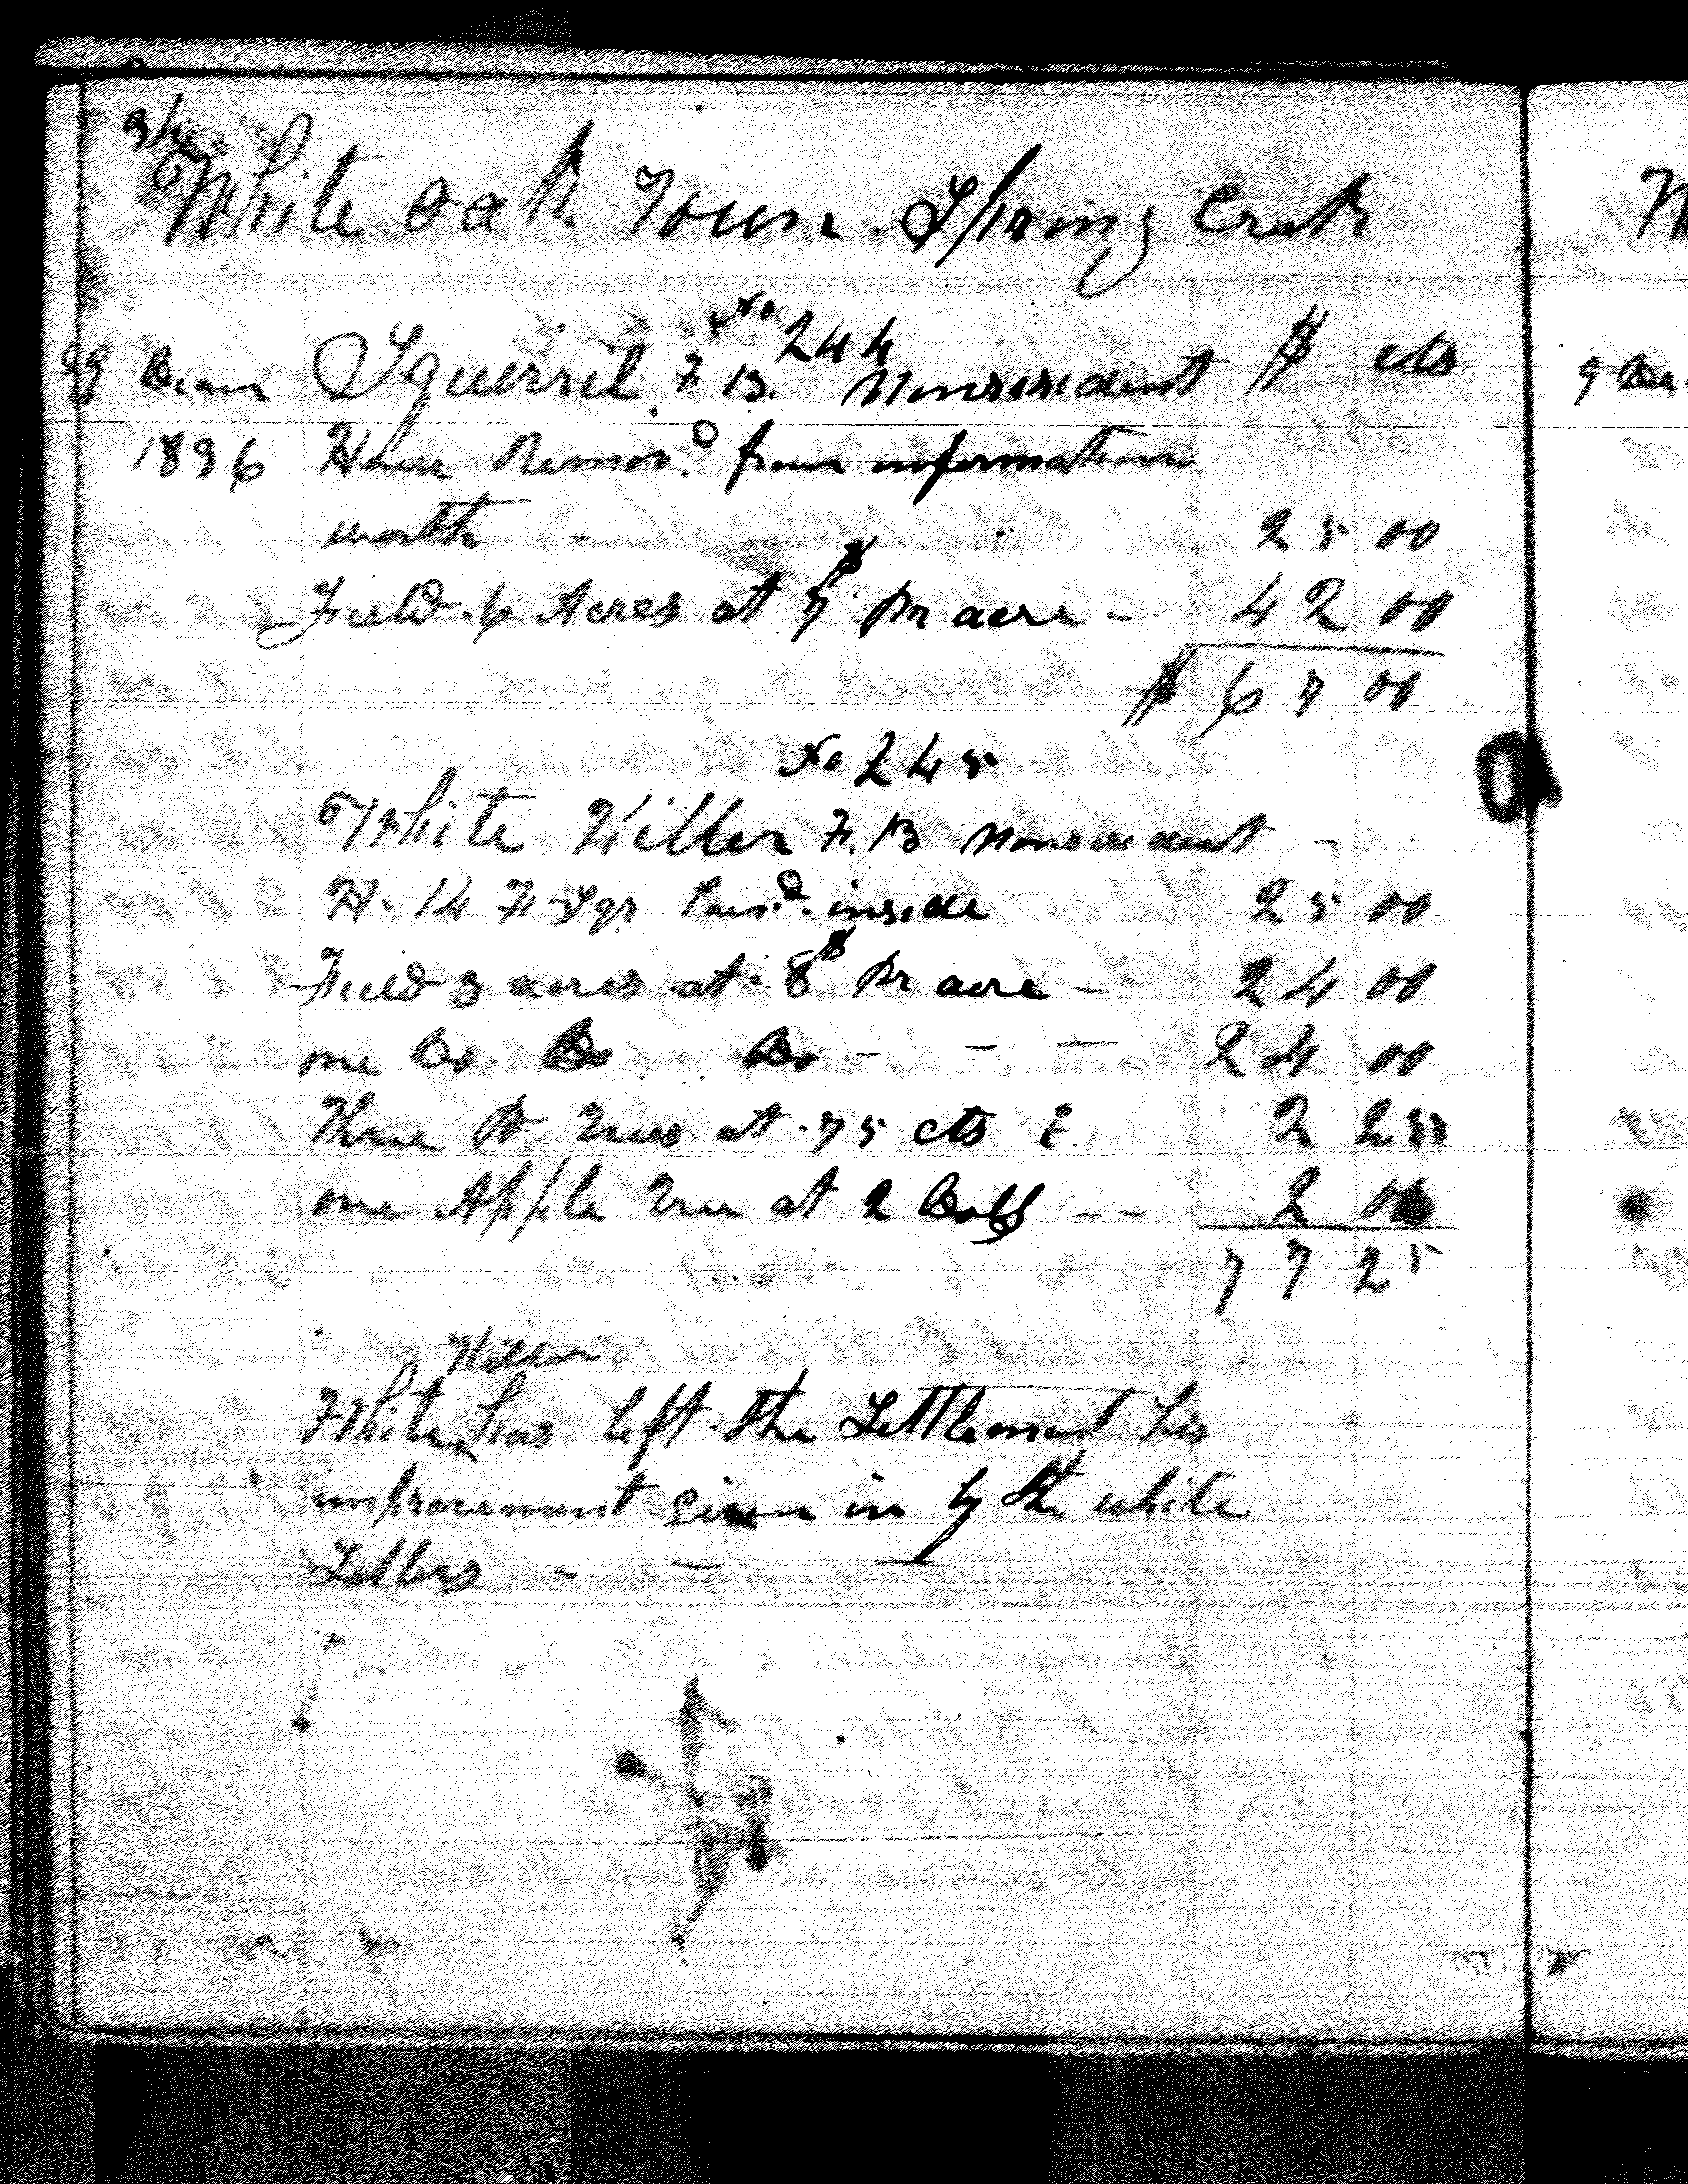 34
White Oak Town Spring Creek
No 244
9 Decem Squirril F. B. Nonresident $ cts
1836 House Remov.d from information
worth - 25 00
Field 6 Acres at 7$ pr acre - 42 00
$ 67 00
No 245
White Killer F. B Nonresident -
H. 14 F Sqr. inside 25 00
Field 3 acres at 8$ pr acre - 24 00
one Do. Do Do - - - 24 00
Three P Trees at 75 cts E. 2 25
one Apple Tree at 2 Dolls - - 2 00
77 25
Killer
White ^ has left the Settlement his
improvement given in by the white
Settlers - - -
9 De